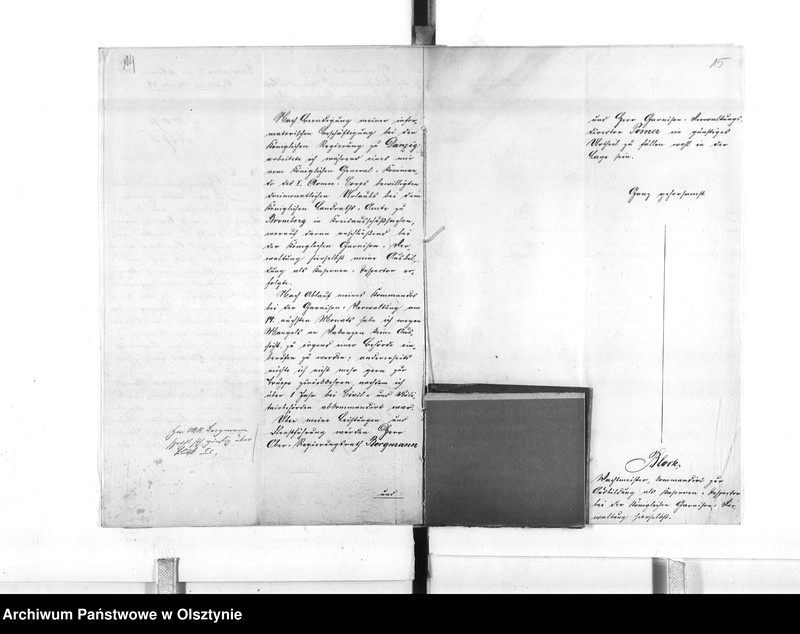 14
Nach Beendigung meiner infor-
matorischen Beschäftigung bei der
Königlichen Regierung zu Danzig
arbeitete ich während eines mir
vom Königlichen General-Komman-
do des I. Armee-Corps bewilligten
dreimonatlichen Urlaubs bei dem
Königlichen Landraths-Amte zu
Bromberg in Kreisausschußsachen,
worauf daran anschließend bei
der Königlichen Garnison-Ver-
waltung hierselbst meine Ausbil-
dung als Kasernen-Inspector er-
folgte.
Nach Ablauf meines Kommandos
bei der Garnison-Verwaltung am
14. nächsten Monats habe ich wegen
Mangels an Vakanzen keine Aus-
sicht, zu irgend einer Behörde ein-
berufen zu werden; andererseits
möchte ich nicht mehr gern zur
Truppe zurückkehren, nachdem ich
über 1 Jahr bei Civil- und Mili-
tairbehörden abkommandirt war.
Über meine Leistungen und
Dienstführung würden Herr
Ober-Regierungsrath Bergmann
und
Herr Bergmann
günstig über
Block
15
und Herr Garnison-Verwaltungs-
director Pomer ein günstiges
Urtheil zu fällen wohl in der
Lage sein.
Ganz gehorsamst
Block.
Wachtmeister, kommandirt zur
Ausbildung als Kasernen-Inspector
bei der Königlichen Garnison-Ver-
waltung hierselbst.
Archiwum Państwowe w Olsztynie